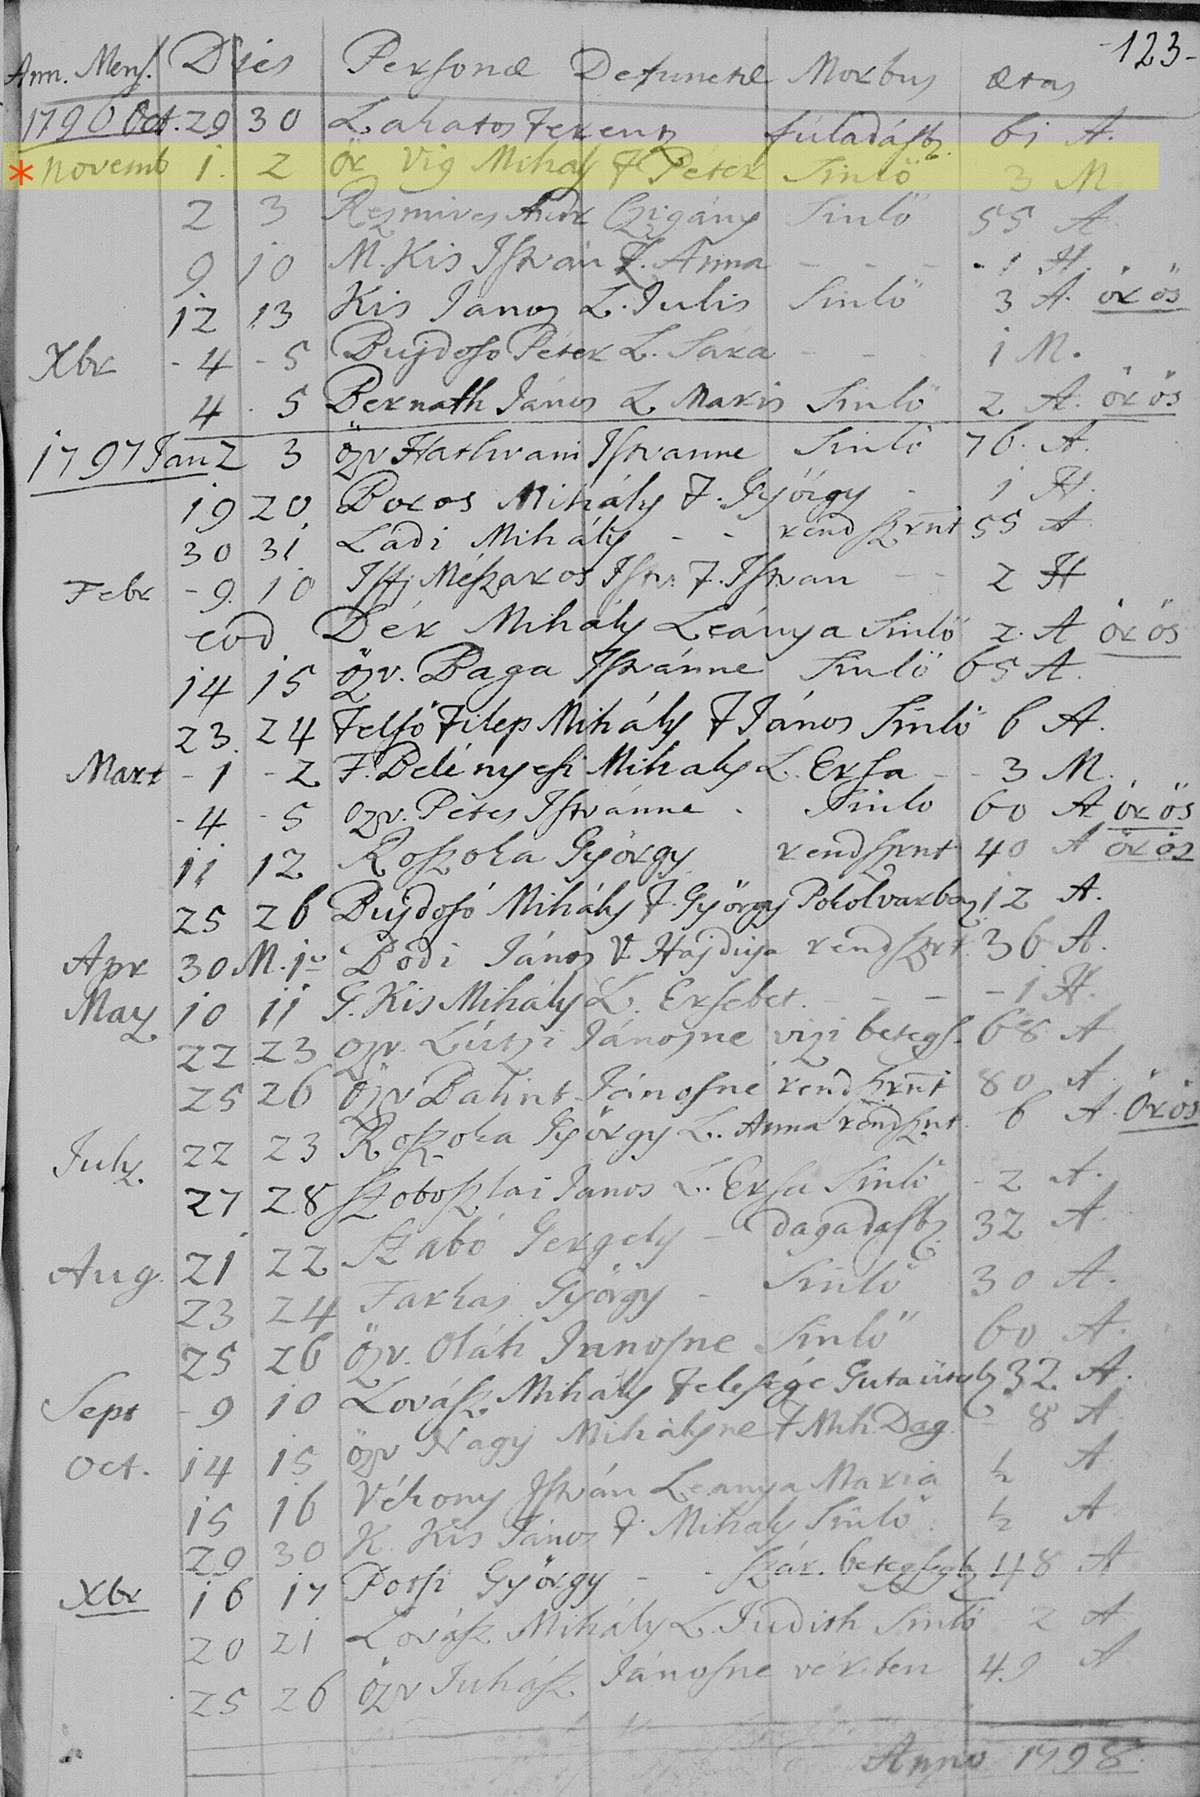 -123-
Ann. Mens. Dies Personæ Defunctæ Morbus ætas
1796 Oct. 29 30 Lakatos Ferentz fúladásb. 61 A.
* Novemb 1. 2 ör Vig Mihaly F Peter Sinlö 3 M
2 3 Rezmives Andr Czigány Sinlö 55 A
9 10 M. Kis István F. Anna - - - 1 H.
12 13 Kis Janos L. Julis Sinlö 3 A. örös
Xbr - 4 - 5 Bujdoso Péter L. Sára - - 1 M.
4 5 Bernath János L Maris Sinlö 2 A. örös
1797 Jan 2 3 özv Hathvani Istvanne Sinlö 76. A.
19 20 Boros Mihály F. György - 1 H.
30 31 Ladi Mihály - - rendszrnt 55 A
Febr - 9. 10 Iffj Mészaros Istv. F. Istvan - - 2 H
eod Dér Mihály Leánya Sinlö 2. A örös
14 15 özv. Baga Istvánne Sinlö 65 A.
23. 24 Felsö Filep Mihály F János Sinlö 6 A.
Mart - 1 - 2 F. Belényesi Mihaly L. Ersa - - 3 M.
- 4 - 5 özv. Petes Istvánne - Sinlo 60 A örös
11 12 Roszoka György rendszrnt 40 A örös
25 26 Bujdosó Mihály F. György Pokolvarban 12 A.
Apr 30 M. 1o Bodi János V. Hajduja rendszrt. 36 A.
May 10 11 G. Kis Mihály L. Ersebet. - - - 1 H.
22 23 özv. Lútzi Jánosne vizi betegs. 68 A
25 26 özv Balint Jánosné rendszrnt 80 A
July 22 23 Roszoka György L. Anna rendsznt. 6 A. örös
27 28 Szoboszlai Janos L. Ersa Sinlö - 2 A.
Aug. 21 22 Szabó Gergely - dagadasb. 32 A
23 24 Farkas György - Sinlö 30 A.
25 26 özv. Oláh Janosne Sinlö 60 A.
Sept - 9 10 Lovász Mihály Felesége Gutaütésb 32 A.
Oct. 14 15 özv Nagy Mihályne F Mih. Dag. - 8 A
15 16 Vékony István Leanya Maria ½ A
29 30 K. Kis János F. Mihaly Sinlö. ½ A
Xbr 16 17 Potsi György - - Szár. betegségb 48 A
20 21 Lovász Mihály L. Judith Sinlö 2 A
25 26 özv Juhász Jánosne vérben 49 A
Anno 1798.